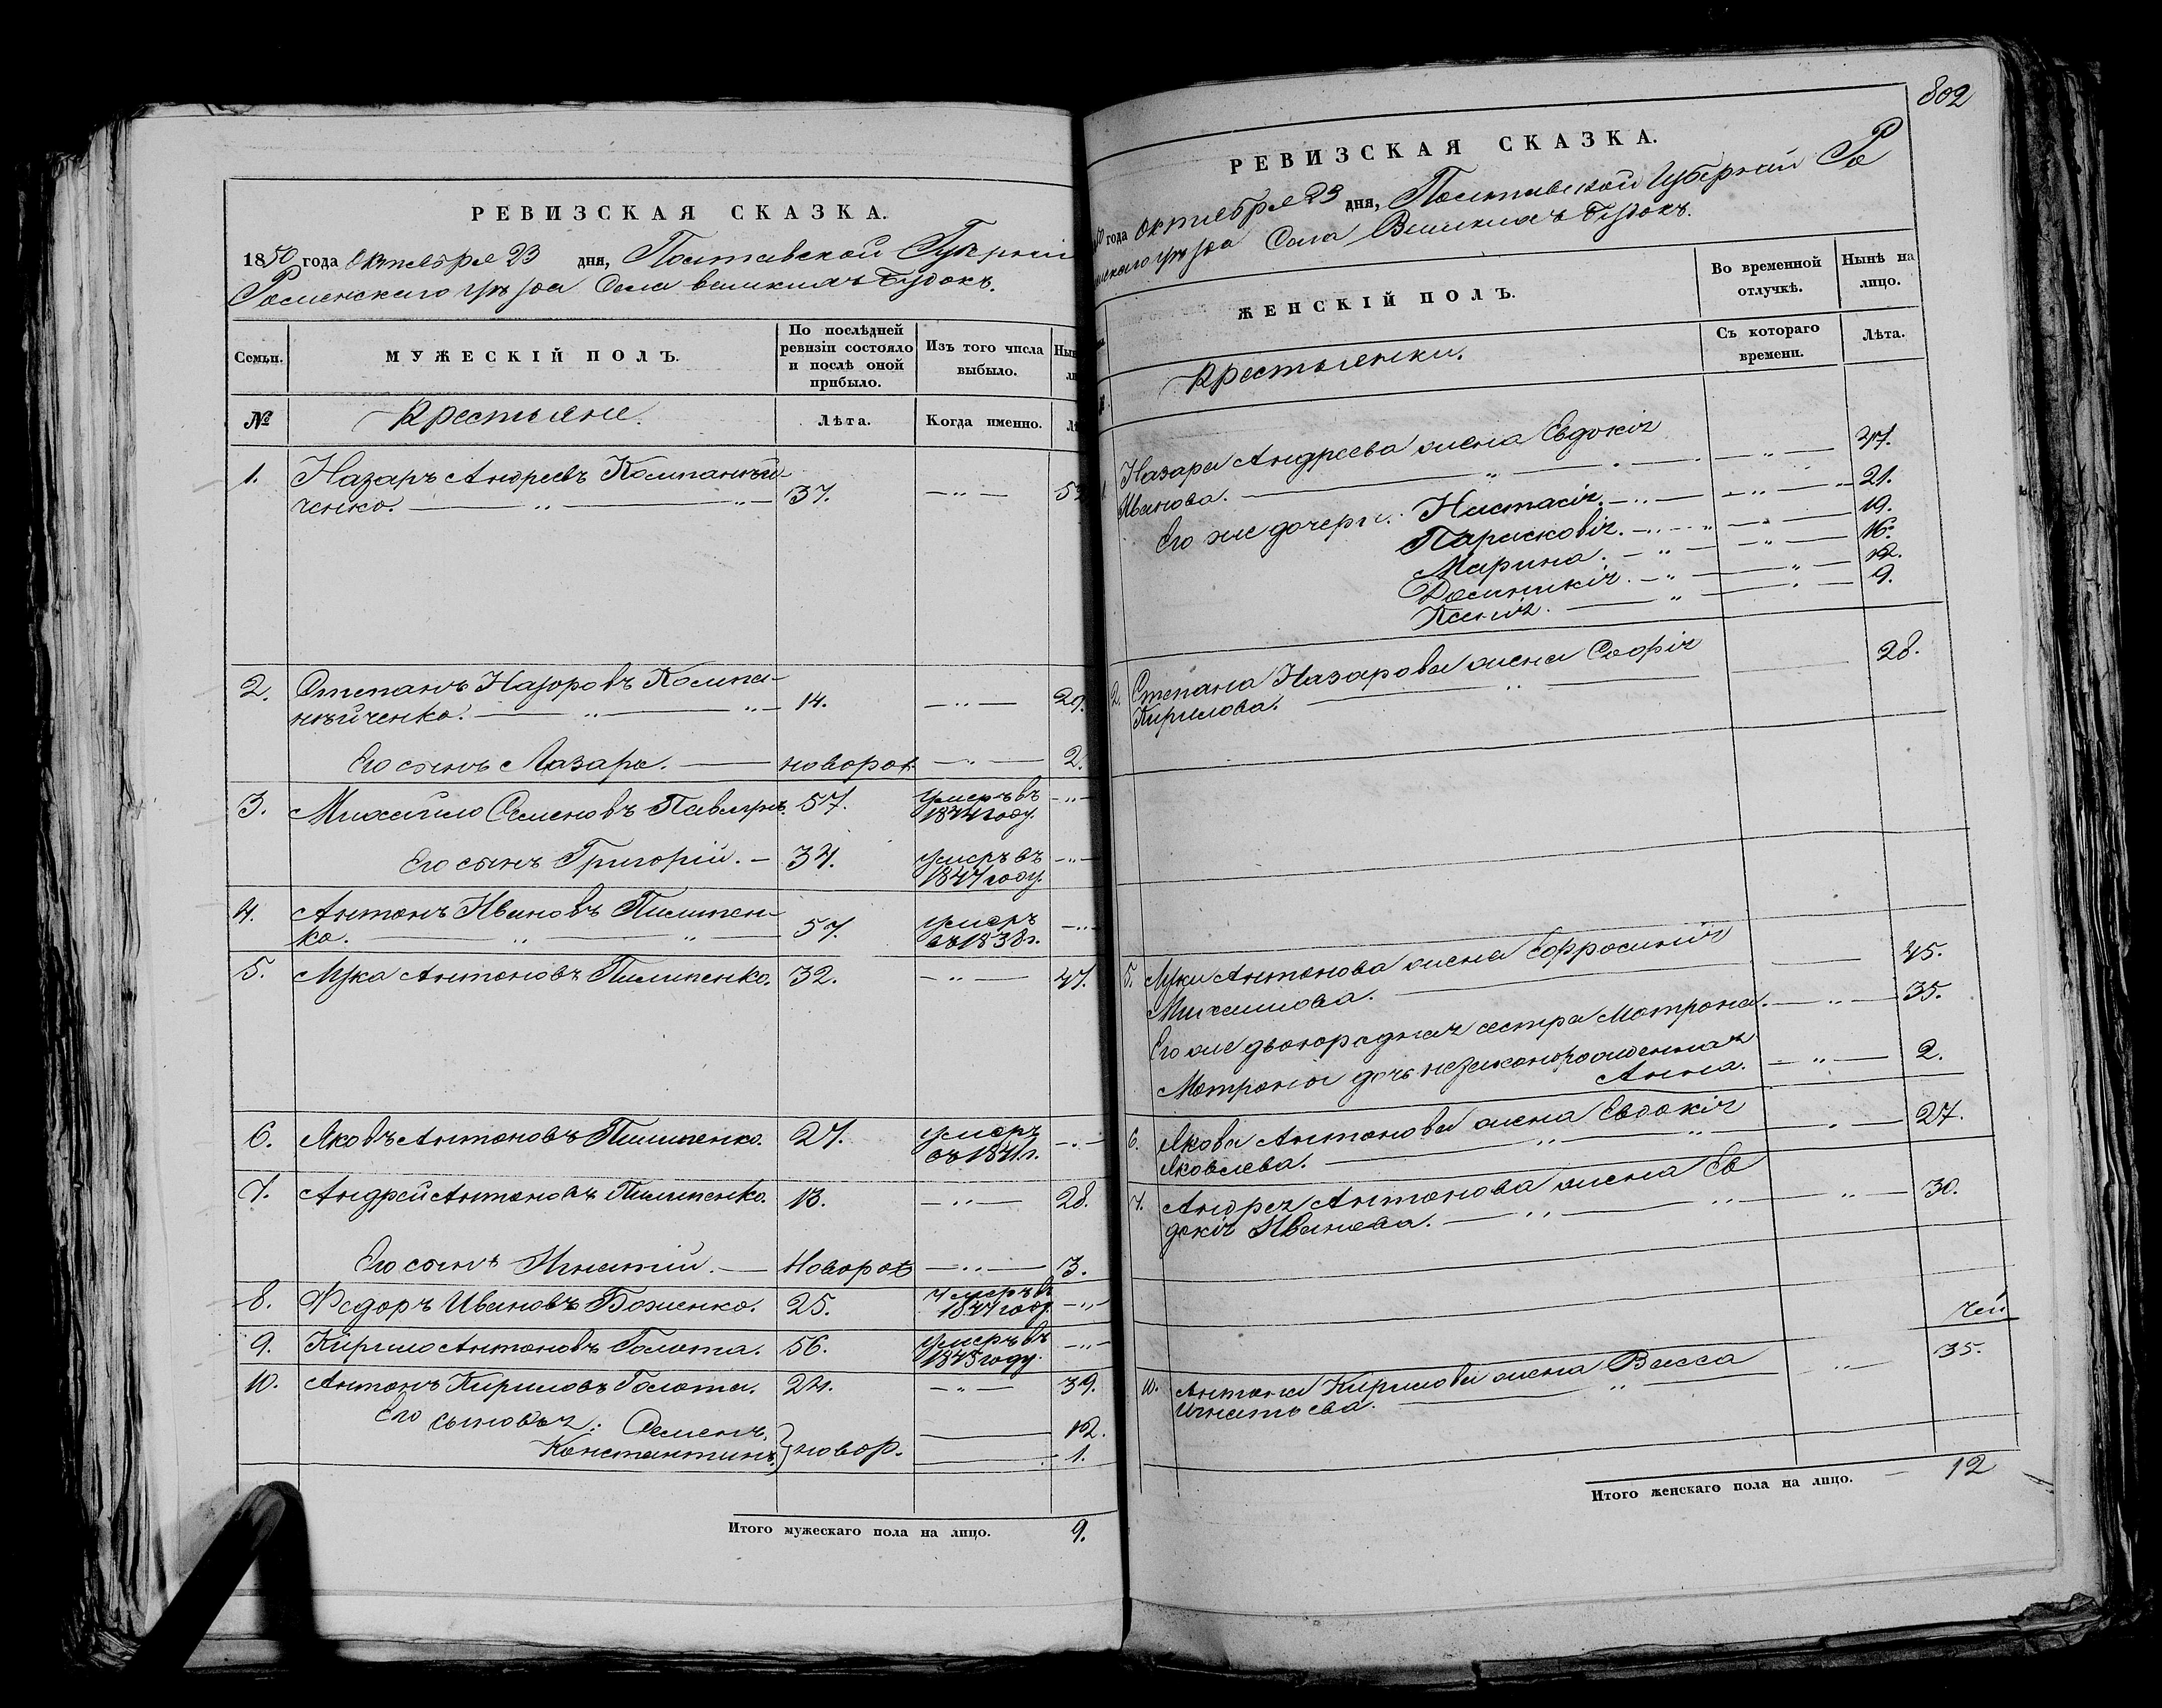 РЕВИЗСКАЯ СКАЗКА.
1850 года Октября 23 дня, Полтавской Губерніи
Роменскаго уѣзда Села великихъ Будокъ.
Семьи.
МУЖЕСКІЙ ПОЛЪ.
По послѣдней ревизіи состояло и послѣ оной прибыло.
Изъ того числа выбыло.
№
Крестьяне.
Лѣта.
Когда именно.
1. Назаръ Андреевъ Компанѣй-
ченко. 37. 52
2. Степанъ Назаровъ Компа-
нѣйченко. 14. 29.
Его сынъ Лазарь. новорож 2.
3. Михайло Семеновъ Павлунь. 57. умеръ въ
1844 году.
Его сынъ Григорій. 34. умеръ въ
1847 году.
4. Антонъ Ивановъ Пилипен-
ко. 57. умеръ
въ 1838 г.
5. Лука Антоновъ Пилипенко. 32. 47.
6. Яковъ Антоновъ Пилипенко. 27. умеръ
въ 1841 г.
7. Андрей Антоновъ Пилипенко. 13. 28.
Его сынъ Игнатій. новорож 3.
8. Федоръ Ивановъ Боженко. 25. умеръ въ
1847 году
9. Кирило Антоновъ Голота. 56. умеръ въ
1845 году.
10. Антонъ Кириловъ Голота. 24. 39.
Его сыновья: Семенъ, 12.
Константинъ. } новор. 1.
Итого мужескаго пола на лицо. 9.
802
РЕВИЗСКАЯ СКАЗКА.
года Октября 23 дня, Полтавской Губерніи Ро
менскаго уѣзда Села Великихъ Будокъ.
ЖЕНСКІЙ ПОЛЪ.
Во временной отлучкѣ.
Нынѣ на лицо.
Крестьянки.
Съ котораго времени.
Лѣта.
Назара Андреева жена Евдокія
Иванова. 47.
Его же дочери: Настасія. 21.
Парасковія. 19.
Марина. 16.
Домникія. 12.
Ксенія. 9.
2. Степана Назарова жена Софія
Кирилова. 28.
5. Луки Антонова жена Ефросинія
Михайлова. 45.
Его же двоюродная сестра Мотрона. 35.
Мотроны дочь незаконорожденная
Анна. 2.
6. Якова Антонова жена Евдокія
Яковлева. 27.
7. Андрея Антонова жена Ев
докія Иванова. 30.
10. Антона Кирилова жена Васса
Игнатьева. 35.
Итого женскаго пола на лицо. 12